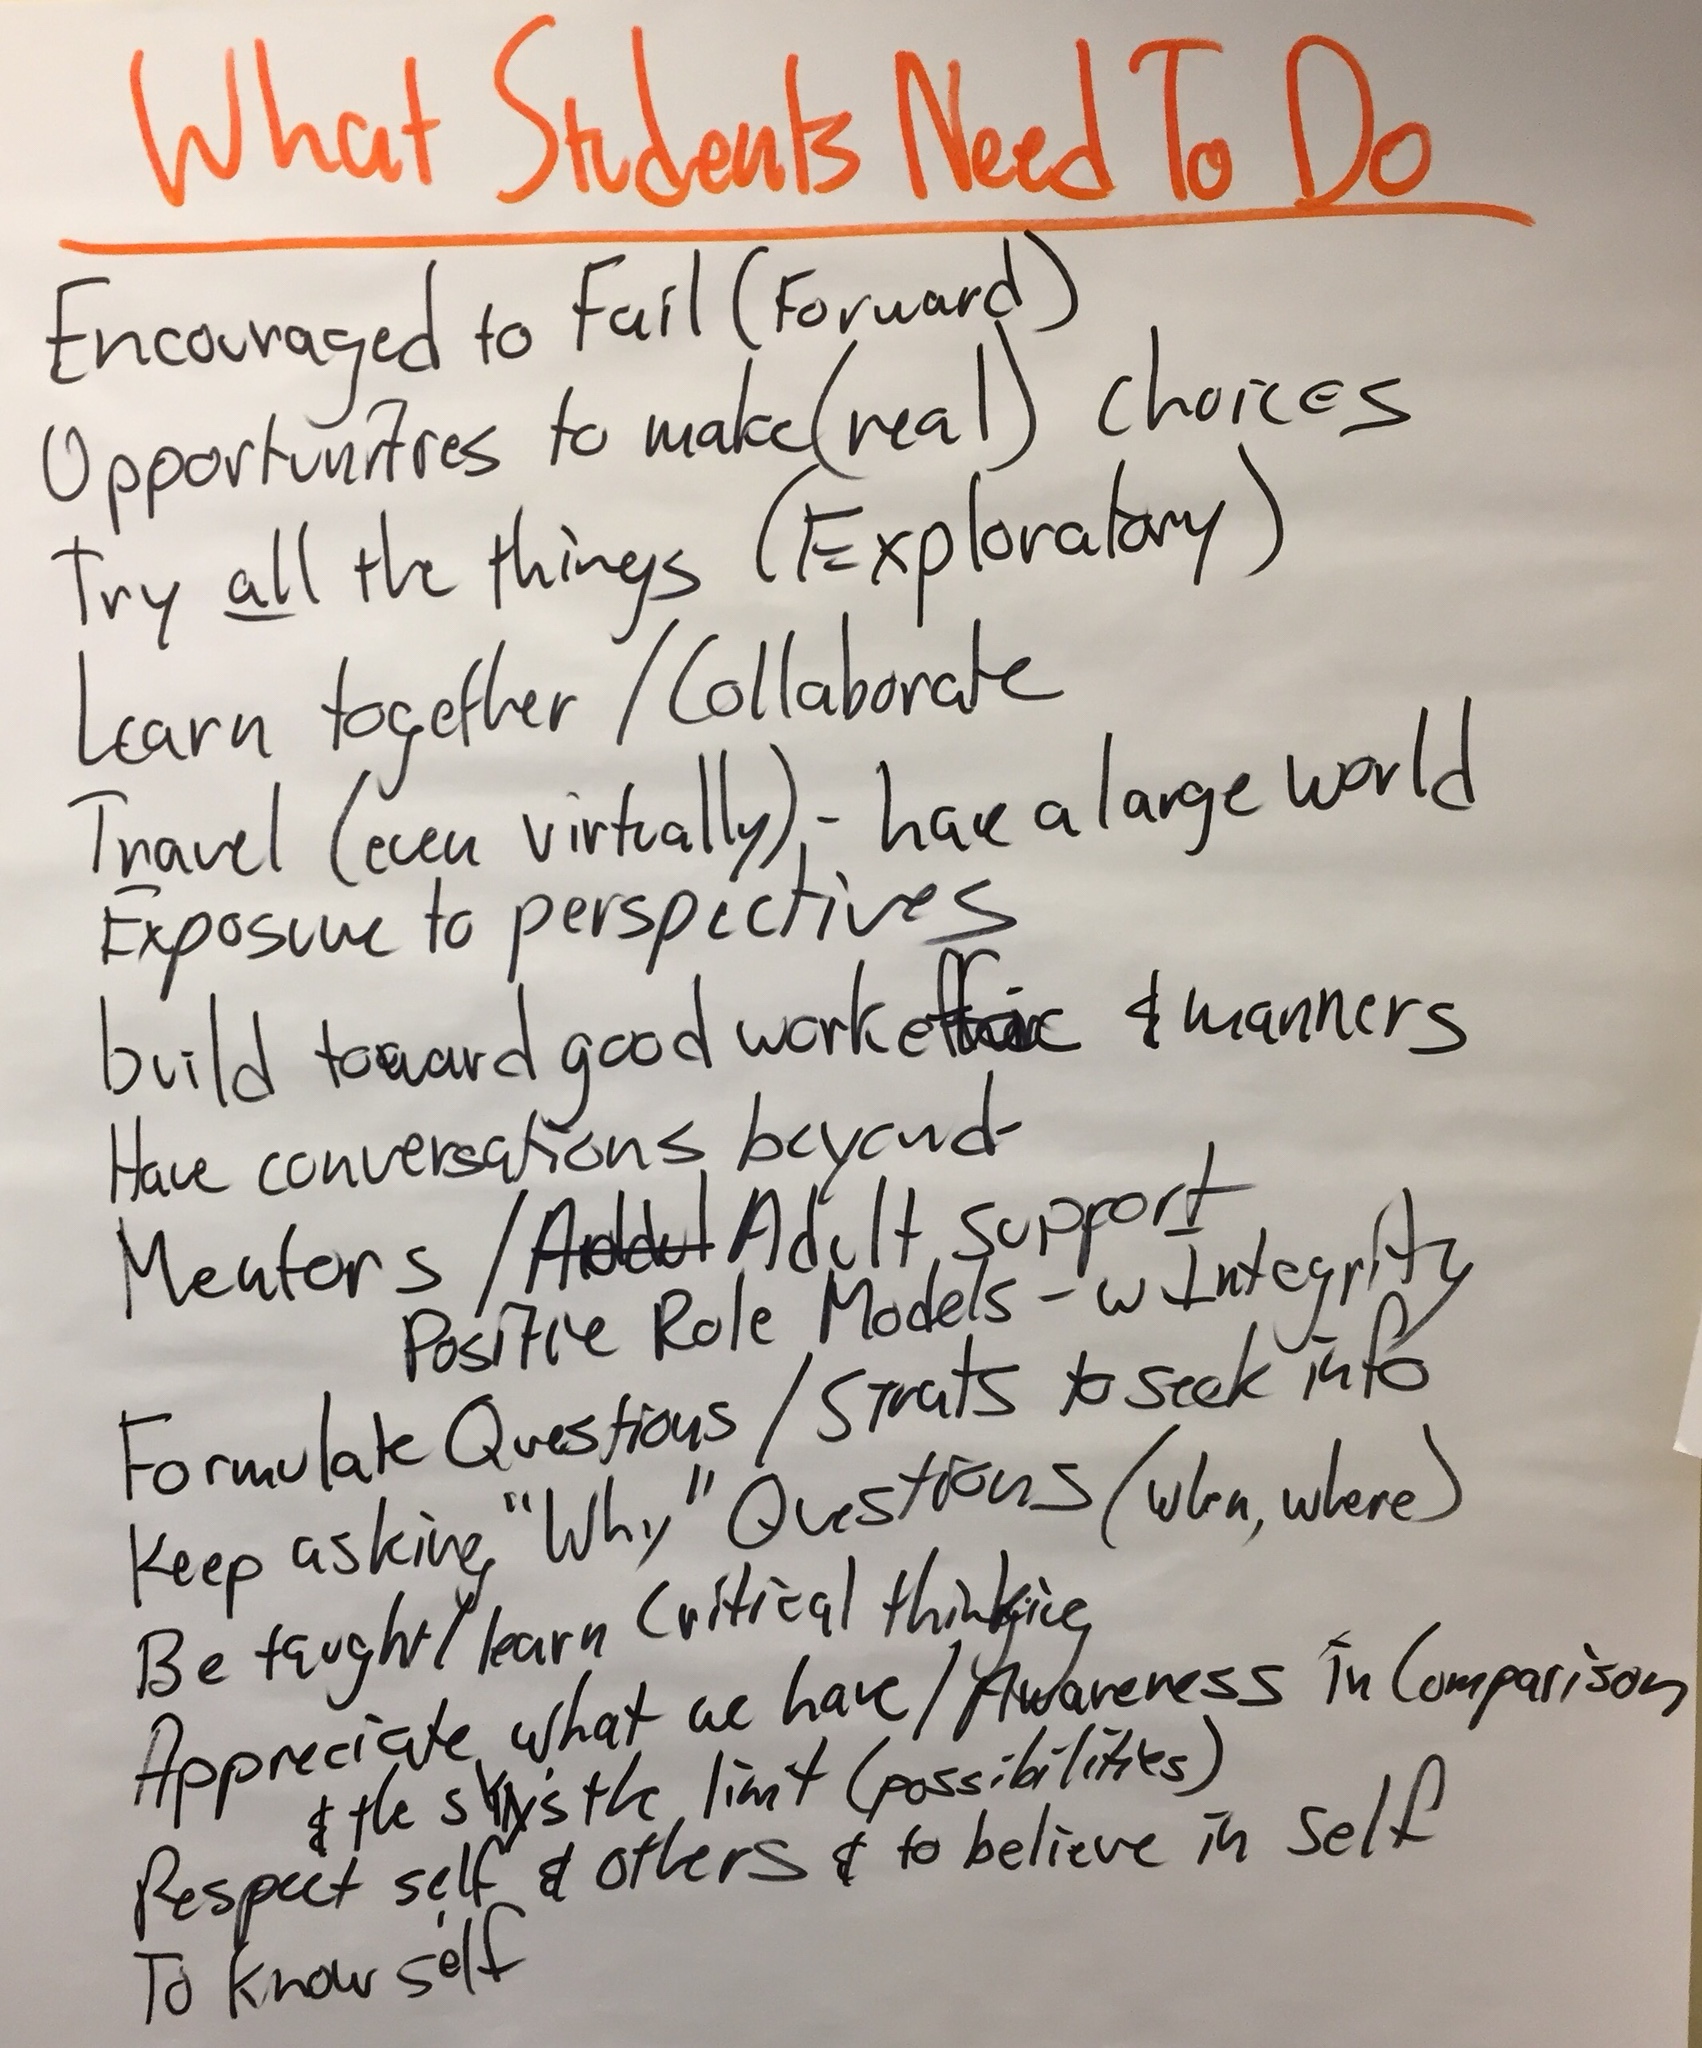 What Students Need To Do
Encouraged to Fail (Forward)
Opportunities to make (real) choices
Try all the things (Exploratory)
Learn together / Collaborate
Travel (even virtually) - have a large world
Exposure to perspectives
build toward good work & manners
Have conversations beyond
Mentors / Adult support
Positive Role Models - w Integrity
Formulate Questions / Strats to seek info
Keep asking "Why" Questions (when, where)
Be taught / learn Critical thinking
Appreciate what we have / Awareness in Comparison
& the sky's the limit (possibilities)
Respect self & others & to believe in self
To know self